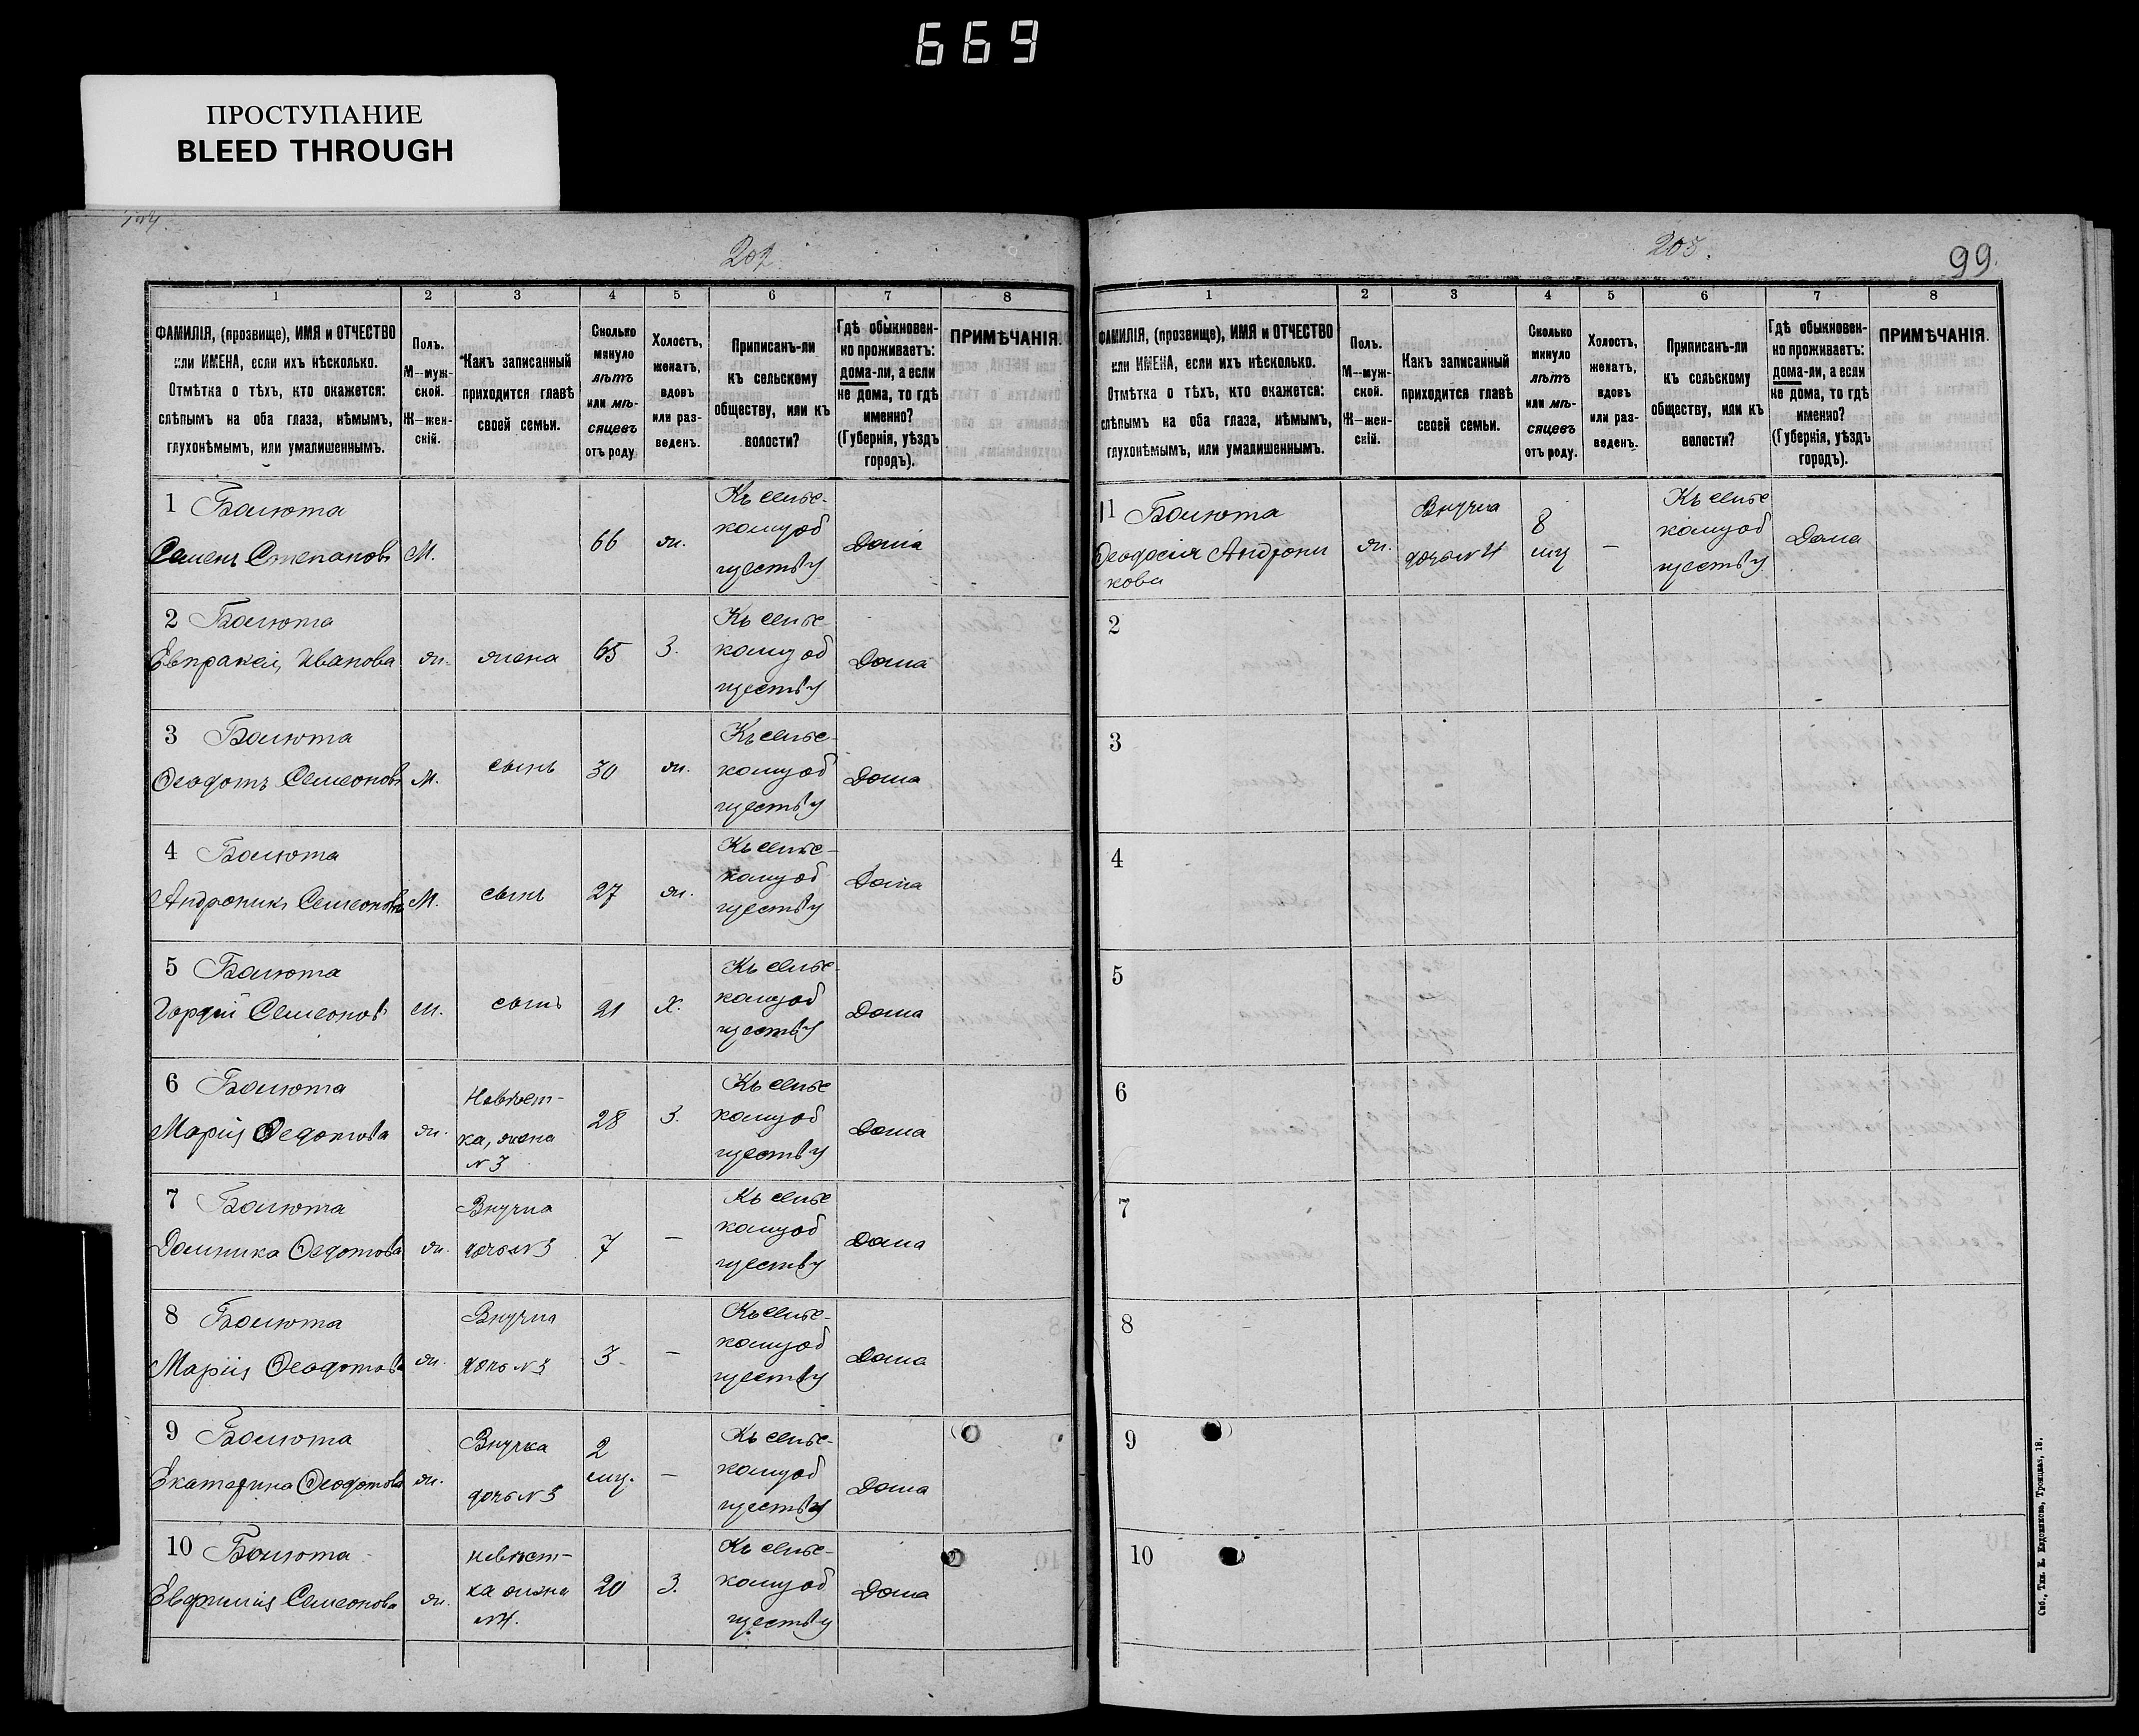 669
ПРОСТУПАНИЕ
BLEED THROUGH
207.
1 2 3 4 5 6 7 8
ФАМИЛІЯ, (прозвище), ИМЯ и ОТЧЕСТВО
или ИМЕНА, если ихъ нѣсколько.
Отмѣтка о тѣхъ, кто окажется:
слѣпымъ на оба глаза, нѣмымъ,
глухонѣмымъ, или умалишеннымъ.
Полъ.
М—муж-
ской.
Ж—жен-
скій.
Какъ записанный
приходится главѣ
своей семьи.
Сколько
минуло
лѣтъ
или мѣ-
сяцевъ
отъ роду
Холостъ,
женатъ,
вдовъ
или раз-
веденъ.
Приписанъ-ли
къ сельскому
обществу, или къ
волости?
Гдѣ обыкновен-
но проживаетъ:
дома-ли, а если
не дома, то гдѣ
именно?
(Губернія, уѣздъ
городъ).
ПРИМѢЧАНІЯ.
1 Балюта
Семенъ Степановъ М. 66 ж.
Къ сельс-
кому об
ществу
Дома
2 Балюта
Евпраксія Иванова ж. жена 65 З.
Къ сельс-
кому об
ществу
Дома
3 Балюта
Ѳеодотъ Семеоновъ М. сынъ 30 ж.
Къ сельс-
кому об
ществу
Дома
4 Балюта
Андроникъ Семеоновъ М. сынъ 27 ж.
Къ сельс-
кому об
ществу
Дома
5 Балюта
Гордѣй Семеоновъ М. сынъ 21 Х.
Къ сельс-
кому об
ществу
Дома
6 Балюта
Марія Ѳедотова ж.
Невѣст-
ка, жена
№3
28 З.
Къ сельс
кому об
ществу
Дома
7 Балюта
Домника Ѳедотова ж.
Внучка
дочь №3
7 —
Къ сельс
кому об
ществу
Дома
8 Балюта
Марія Ѳеодотова ж.
Внучка
дочь №3
3 —
Къ сельс-
кому об
ществу
Дома
9 Балюта
Екатерина Ѳеодотова ж.
Внучка
дочь №3
2
мц. —
Къ сельс-
кому об
ществу
Дома
10 Балюта
Евфимія Семеонова ж.
невѣст-
ка жена
№4.
20 З.
Къ сельс-
кому об
ществу
Дома
205.
99
1 2 3 4 5 6 7 8
ФАМИЛІЯ, (прозвище), ИМЯ и ОТЧЕСТВО
или ИМЕНА, если ихъ нѣсколько.
Отмѣтка о тѣхъ, кто окажется:
слѣпымъ на оба глаза, нѣмымъ,
глухонѣмымъ, или умалишеннымъ.
Полъ.
М—муж-
ской.
Ж—жен-
скій.
Какъ записанный
приходится главѣ
своей семьи.
Сколько
минуло
лѣтъ
или мѣ-
сяцевъ
отъ роду.
Холостъ,
женатъ,
вдовъ
или раз-
веденъ.
Приписанъ-ли
къ сельскому
обществу, или къ
волости?
Гдѣ обыкновен-
но проживаетъ:
дома-ли, а если
не дома, то гдѣ
именно?
(Губернія, уѣздъ
городъ).
ПРИМѢЧАНІЯ.
11 Балюта
Ѳеодосія Андрони
кова
ж.
Внучка
дочь №4
8
мц —
Къ сельс
кому об
ществу
Дома
2
3
4
5
6
7
8
9
10
Спб., Тип. Е. Евдокимова, Троицкая, 18.